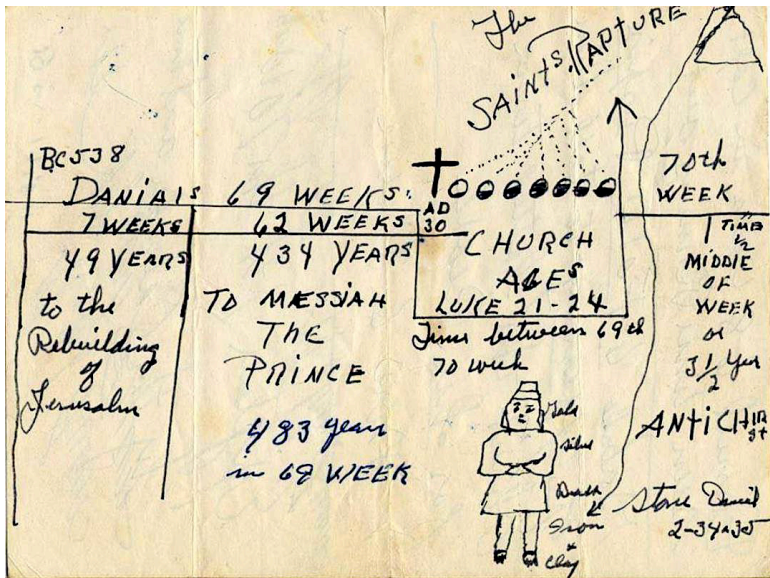 The
SAINTS RAPTURE
BC 538
DANIALS 69 WEEKS
7 WEEKS 62 WEEKS
AD
30
70th
WEEK
49 YEARS
to the
Rebuilding
of
Jerusalm
434 YEARS
TO MAESSIAH
THE
PRINCE
483 years
in 69 WEEK
CHURCH
AGES
LUKE 21-24
Time between 69th
70 week
TIME
1/2
MIDDLE
OF
WEEK
or
3 1/2 Year
ANTICHIRst
Gold
Silver
Brass
Iron
&
Clay
Stone Daniel
2-34-35